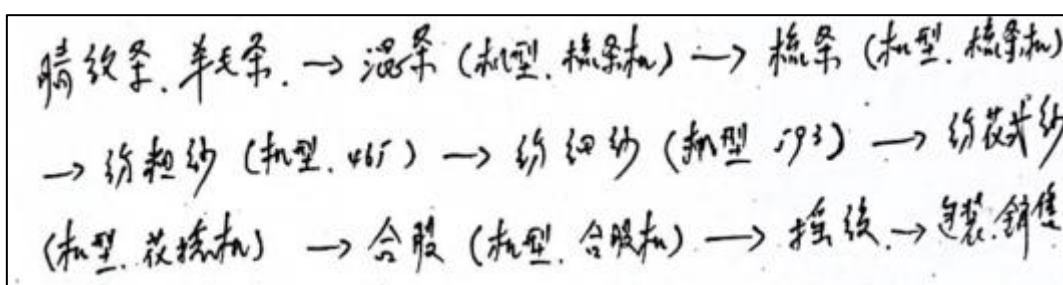 腈纶条.羊毛条.→混条(机型.梳条机)→梳条(机型.梳条机)
→纺粗纱(机型.465)→纺细纱(机型.593)→纺花式纱
(机型.花捻机)→合股(机型.合股机)→摇绞.→包装.销售